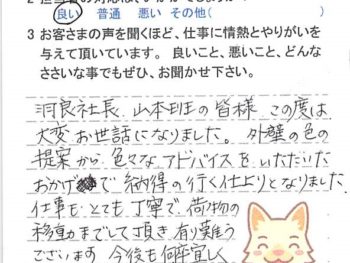 良い 普通 悪い その他(
3 お客さまの声を聞くほど、仕事に情熱とやりがいを
与えて頂いています。 良いこと、悪いこと、どんな
ささいな事でもぜひ、お聞かせ下さい。
洞良社長、山本班の皆様 この度は
大変お世話になりました。外壁の色の
提案から 色々なアドバイスを いただいた
おかげで 納得の行く仕上りとなりました
仕事も とても丁寧で、荷物の
移動までして頂き 有り難う
ございます 今後も何卒宜しく